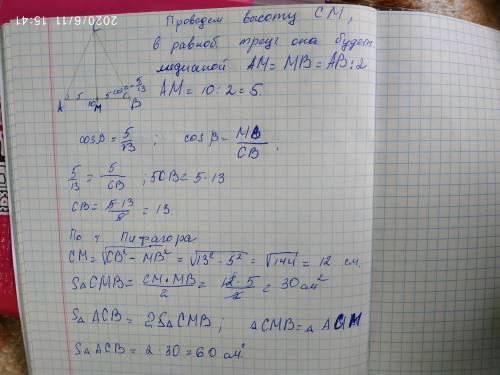 2020/6/11 15:41
Проведем высоту CM,
в равноб. треуг она будет
медианой AM = MB = AB:2
AM = 10:2 = 5.
C
A 5 10 M 5 cos β = 5/13 B
cos β = 5/13 ; cos β = MB/CB ;
5/13 = 5/CB ; 5CB = 5·13
CB = 5·13/5 = 13.
По т Пифагора
CM = √CB² - MB² = √13² - 5² = √144 = 12 см.
S△CMB = CM·MB/2 = 12·5/2 = 30 см²
S△ACB = 2S△CMB ; △CMB = △ACM
S△ACB = 2·30 = 60 см²